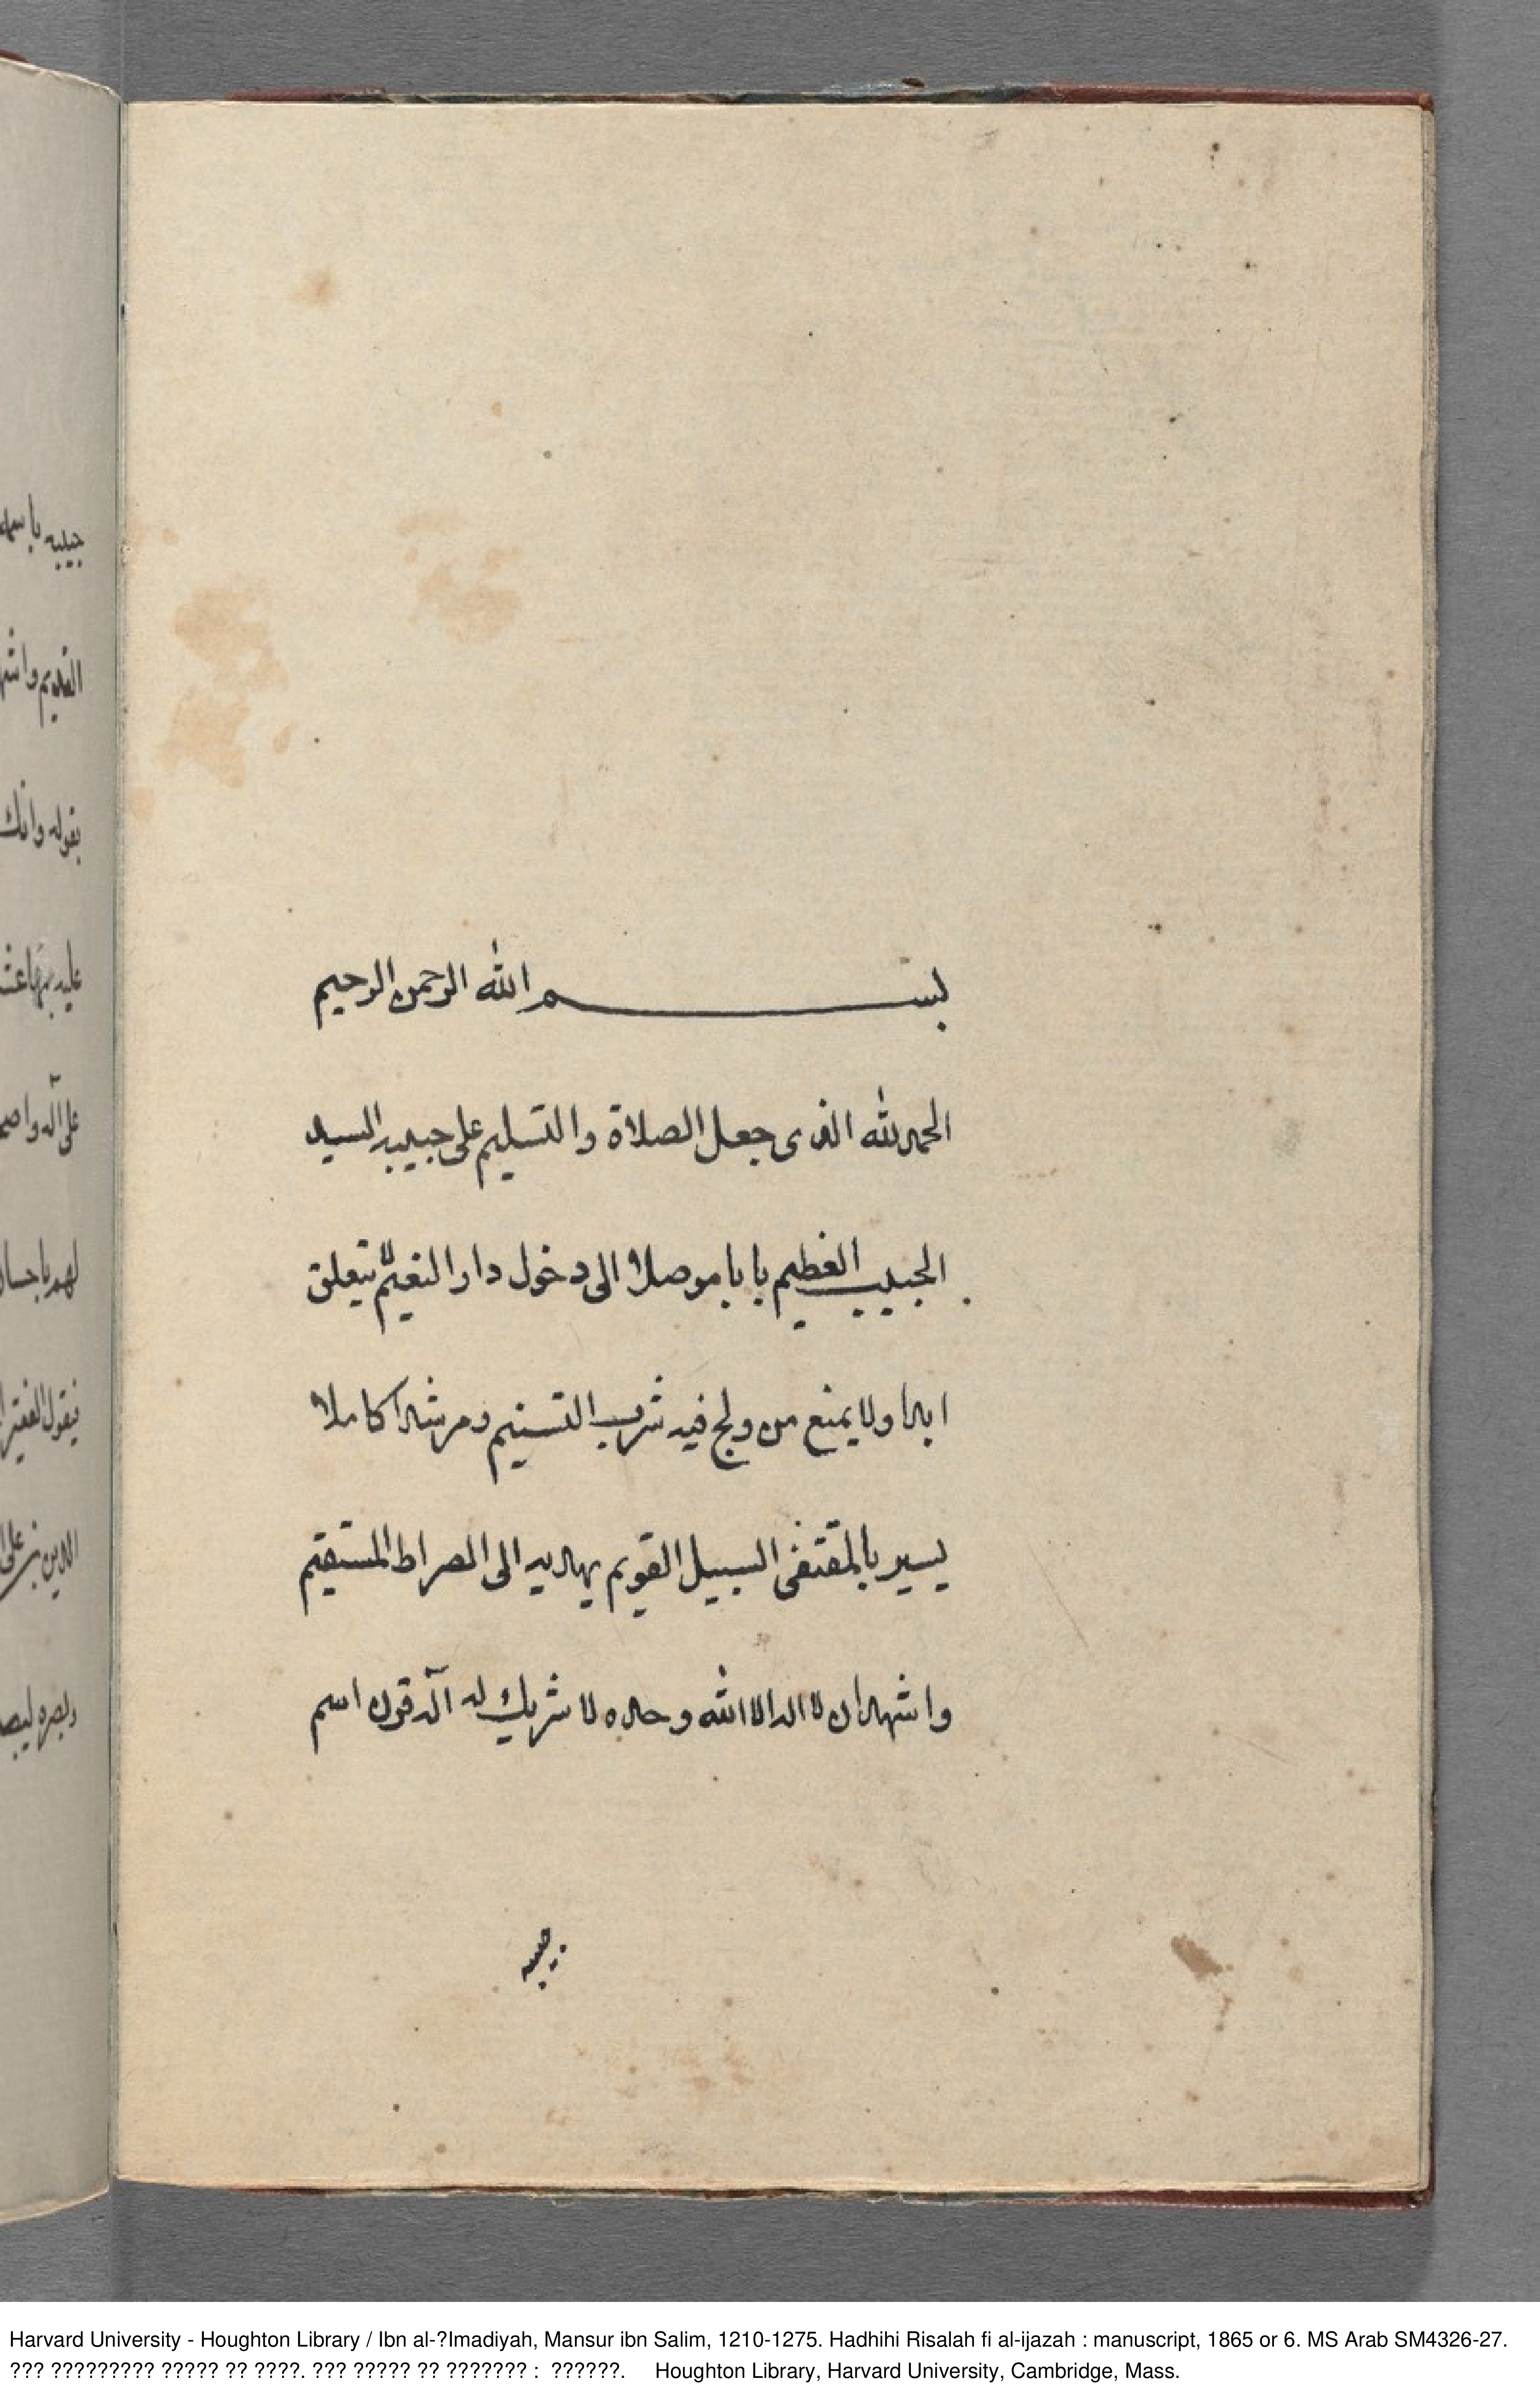 بسم الله الرحمن الرحيم
الحمد لله الذى جعل الصلاة والتسليم على حبيبه السيد
الحبيب العظيم بابا موصلا الى دخول دار النعيم لا يتعلق
ابدا ولا يمنع من ولج فيه شرب التسنيم ومرشدا كاملا
يسير بالمقتفى السبيل القويم يهديه الى الصراط المستقيم
واشهد ان لا اله الا الله وحده لا شريك له اله قرن اسم
حبيبه
حبيبه باسمه
القديم واشهد
بقوله وانك
عليه بها عشر
على آله واصح
لهم باحسان
فيقول الفقير
الدين بن على
وبصره ليبصر
Harvard University - Houghton Library / Ibn al-?Imadiyah, Mansur ibn Salim, 1210-1275. Hadhihi Risalah fi al-ijazah : manuscript, 1865 or 6. MS Arab SM4326-27.
??? ????????? ????? ?? ????. ??? ????? ?? ??????? : ??????. Houghton Library, Harvard University, Cambridge, Mass.